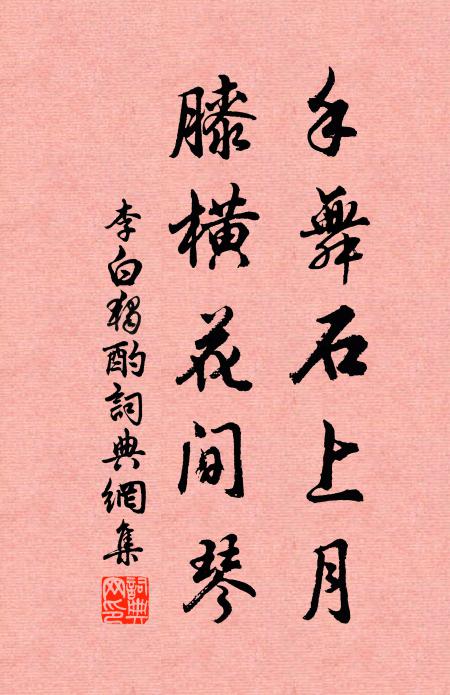 手舞石上月
膝橫花間琴
李白獨酌詞典網集
詞典網印